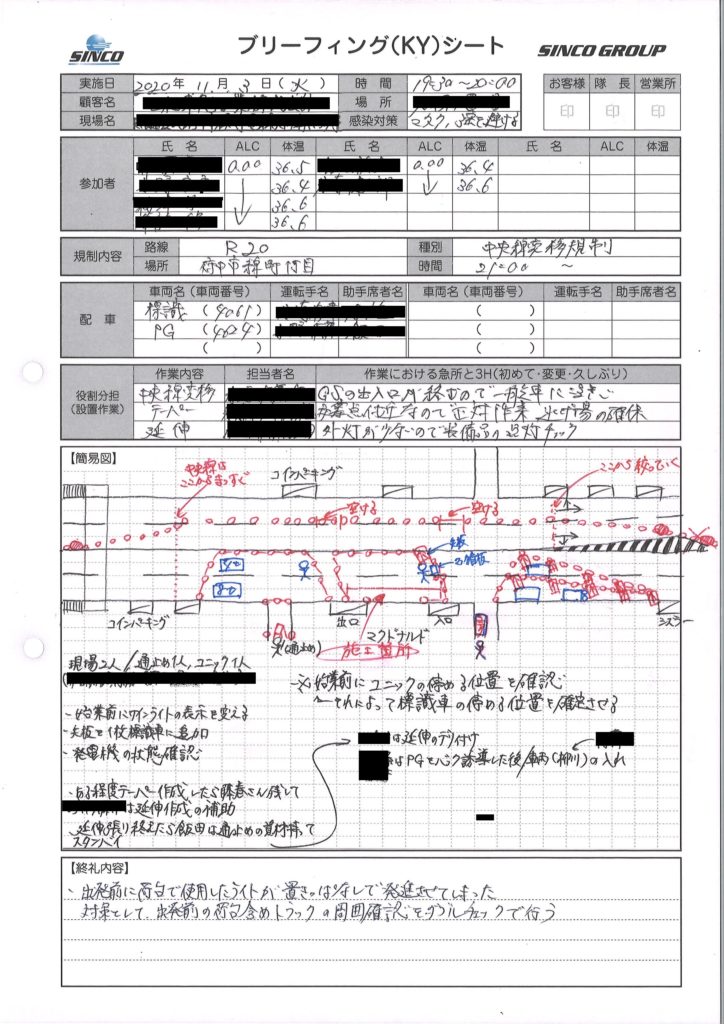 SINCO
ブリーフィング(KY)シート
SINCO GROUP
実施日 2020年 11月 3日(火) 時間 19:30~20:00
お客様 隊長 営業所
顧客名 場所
印 印 印
現場名 感染対策 マスク、
氏名 ALC 体温 氏名 ALC 体温 氏名 ALC 体温
参加者
0.00 36.5 0.00 36.4
36.4 36.6
36.6
36.6
規制内容
路線 R20 種別 中央線変移規制
場所 府中市緑町 時間 21:00 ~
配車
車両名(車両番号) 運転手名 助手席者名 車両名(車両番号) 運転手名 助手席者名
標識 (4061) ( )
PG (4624) ( )
( ) ( )
役割分担
(設置作業)
作業内容 担当者名 作業における急所と3H(初めて・変更・久しぶり)
中央線変移 GSの出入口が
テーパー 交差点付近なので正対作業 逃げ場の確保
延伸 外灯が少ないので装備品の点灯チェック
【簡易図】
中央線は
ここからまっすぐ
コインパーキング
空ける
空ける
ここから絞っていく
矢板
コインパーキング
出口
入口
マクドナルド
(通止め)
施工箇所
シズラー
現場2人/通止め1人、ユニック1人
※始業前にユニックの停める位置を確認
→それによって標識車の停める位置を確定させる
・始業前にサインライトの表示を変える
・矢板を1枚標識車に追加
・発電機の状態確認
は延伸のデリ付け
はPGをバック誘導した後、車両(柳川)の入れ
・ある程度テーパー作成したら藤春さん残して
は延伸作成の補助
・延伸張り終えたら飯田は通止めの資材持って
スタンバイ
【終礼内容】
・出発前に荷台で使用したライトが置きっぱなしで発進させてしまった
対策として、出発前の荷台含めトラックの周囲確認をダブルチェックで行う